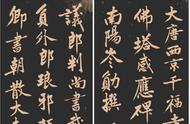 大唐西京千福
佛塔感應碑
南陽岑勛撰
議郎判尚書武
員外郎琅邪
卿書朝散大